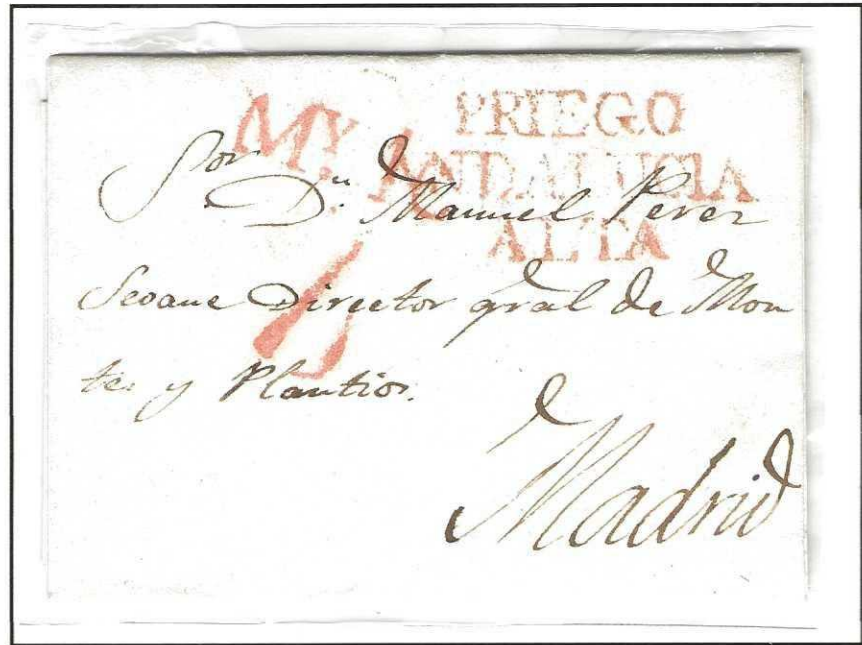 PRIEGO
ANDALUCIA
ALTA
Mʸ. A
Sor
Dn. Manuel Perez
Seoane Director gral de Mon
tes y Plantios.
Madrid